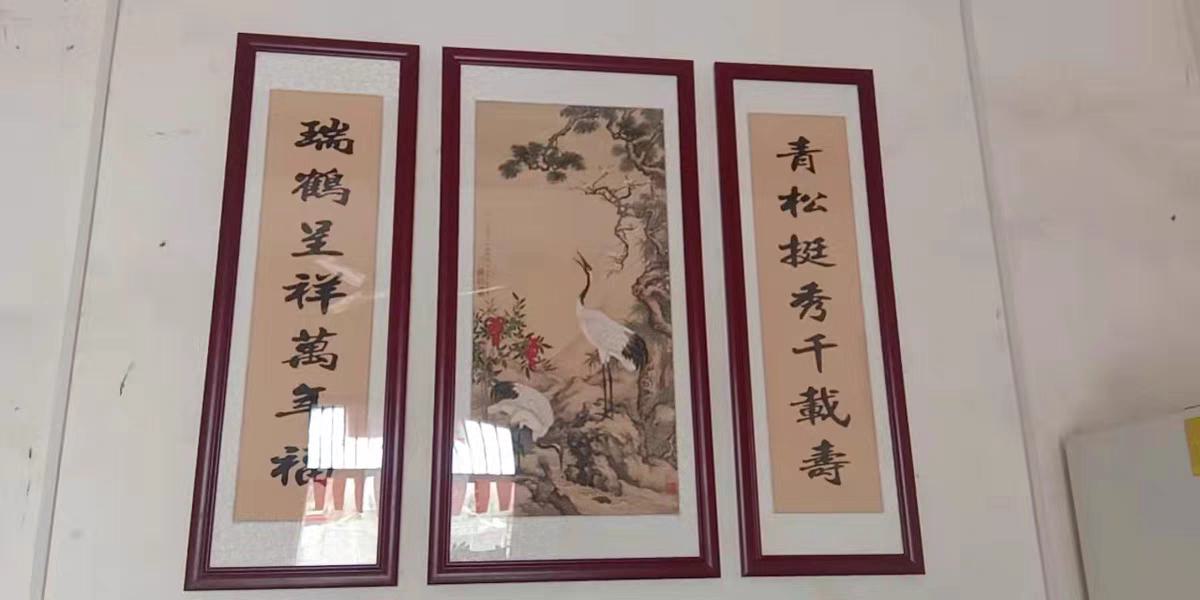 青松挺秀千載壽
瑞鶴呈祥萬年福